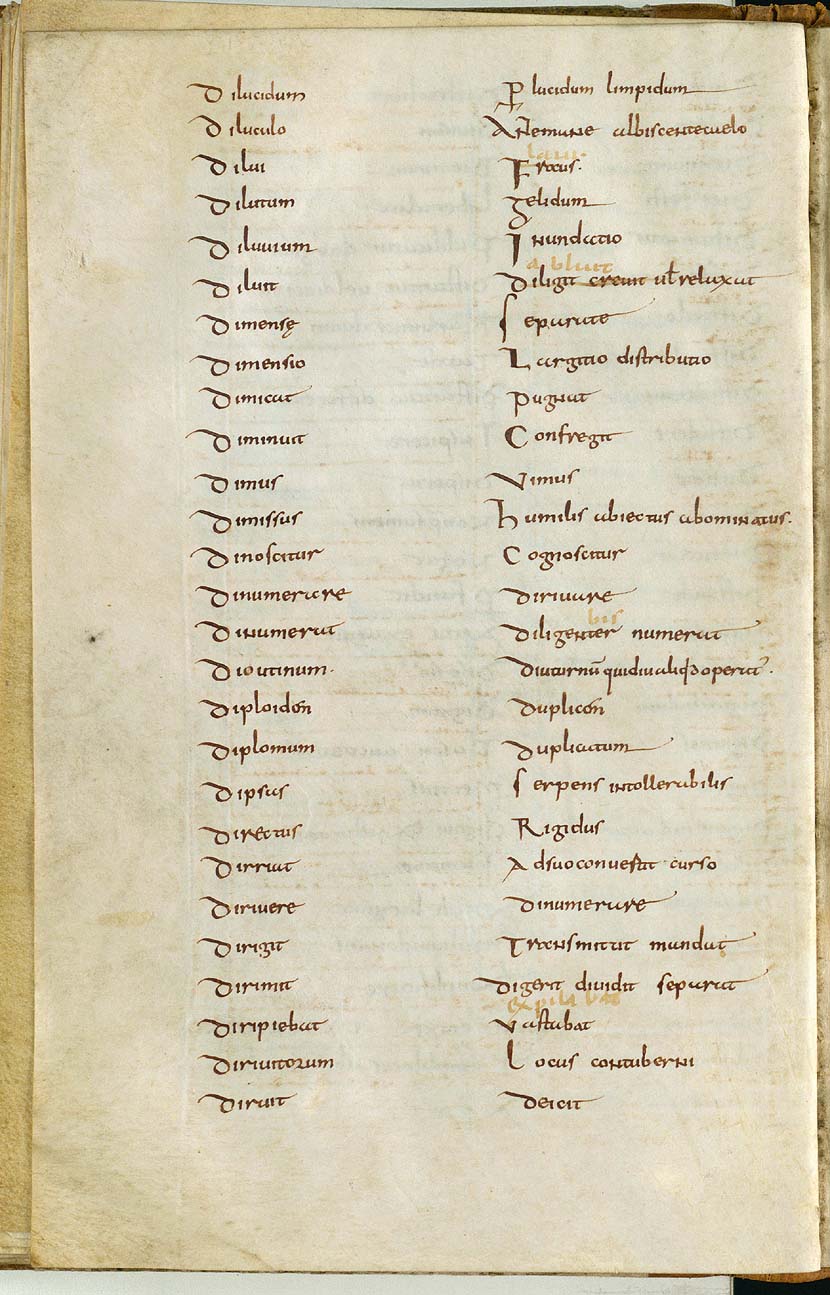 Dilucidum Plucidum limpidum
Diluculo Antemane albiscente caelo
laui.
Dilui Trocus.
Dilutam gelidum
Diluuium Inundatio
abluit
Diluit Diligit creuit ul relaxat
Dimensę Separate
Dimensio Largitio distributio
Dimicat Pugnat
Diminuit Confregit
Dimus Vimus
Dimissus humilis abiectus abominatus.
Dinoscitur Cognoscitur
Dinumerare Diriuare
bis
Dinumerat Diligenter numerat
Dioutinum. Diuturnū quidiu aliqd operat.
Diploiden Duplicen
Diplomum Duplicatum
Dipsas Serpens intollerabilis
Directus Rigidus
Dirriuat Adsuo conuestit curso
Diriuere Dinumerare
Dirigit Transmittit mandat
Dirimit Digerit diuidit separat
expilabat
Diripiebat Vastabat
Diriuitorum Locus contuberni
Diruit Deicit